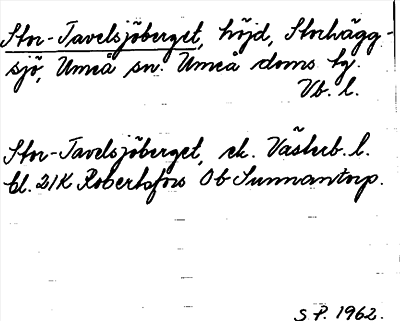 Stor-Tavelsjöberget, höjd, Storhägg-
sjö, Umeå sn. Umeå doms. tg.
Vb. l.
Stor-Tavelsjöberget, ek. Västerb. l.
bl. 21K Robertsfors Ob Sunnantorp.
S. P. 1962.